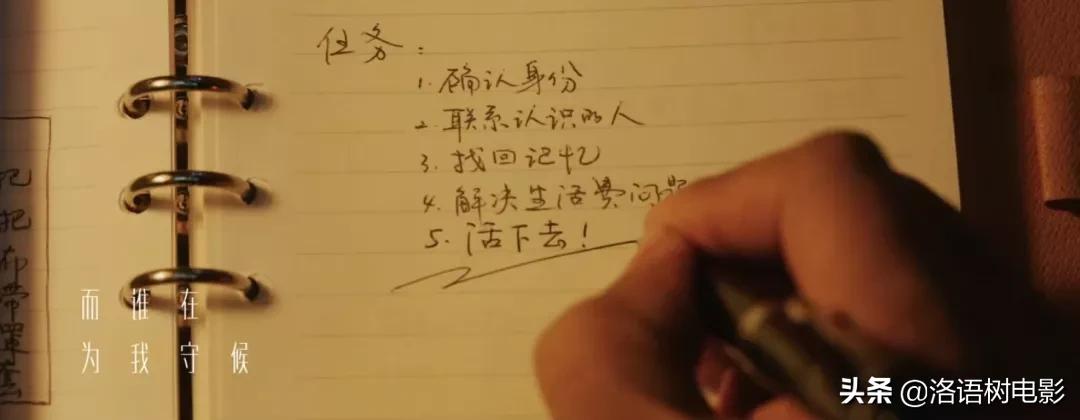 任务：
1. 确认身份
2. 联系认识的人
3. 找回记忆
4. 解决生活费问题
5. 活下去！
把
布
带
罩
而谁在
为我守候
头条 @洛语树电影